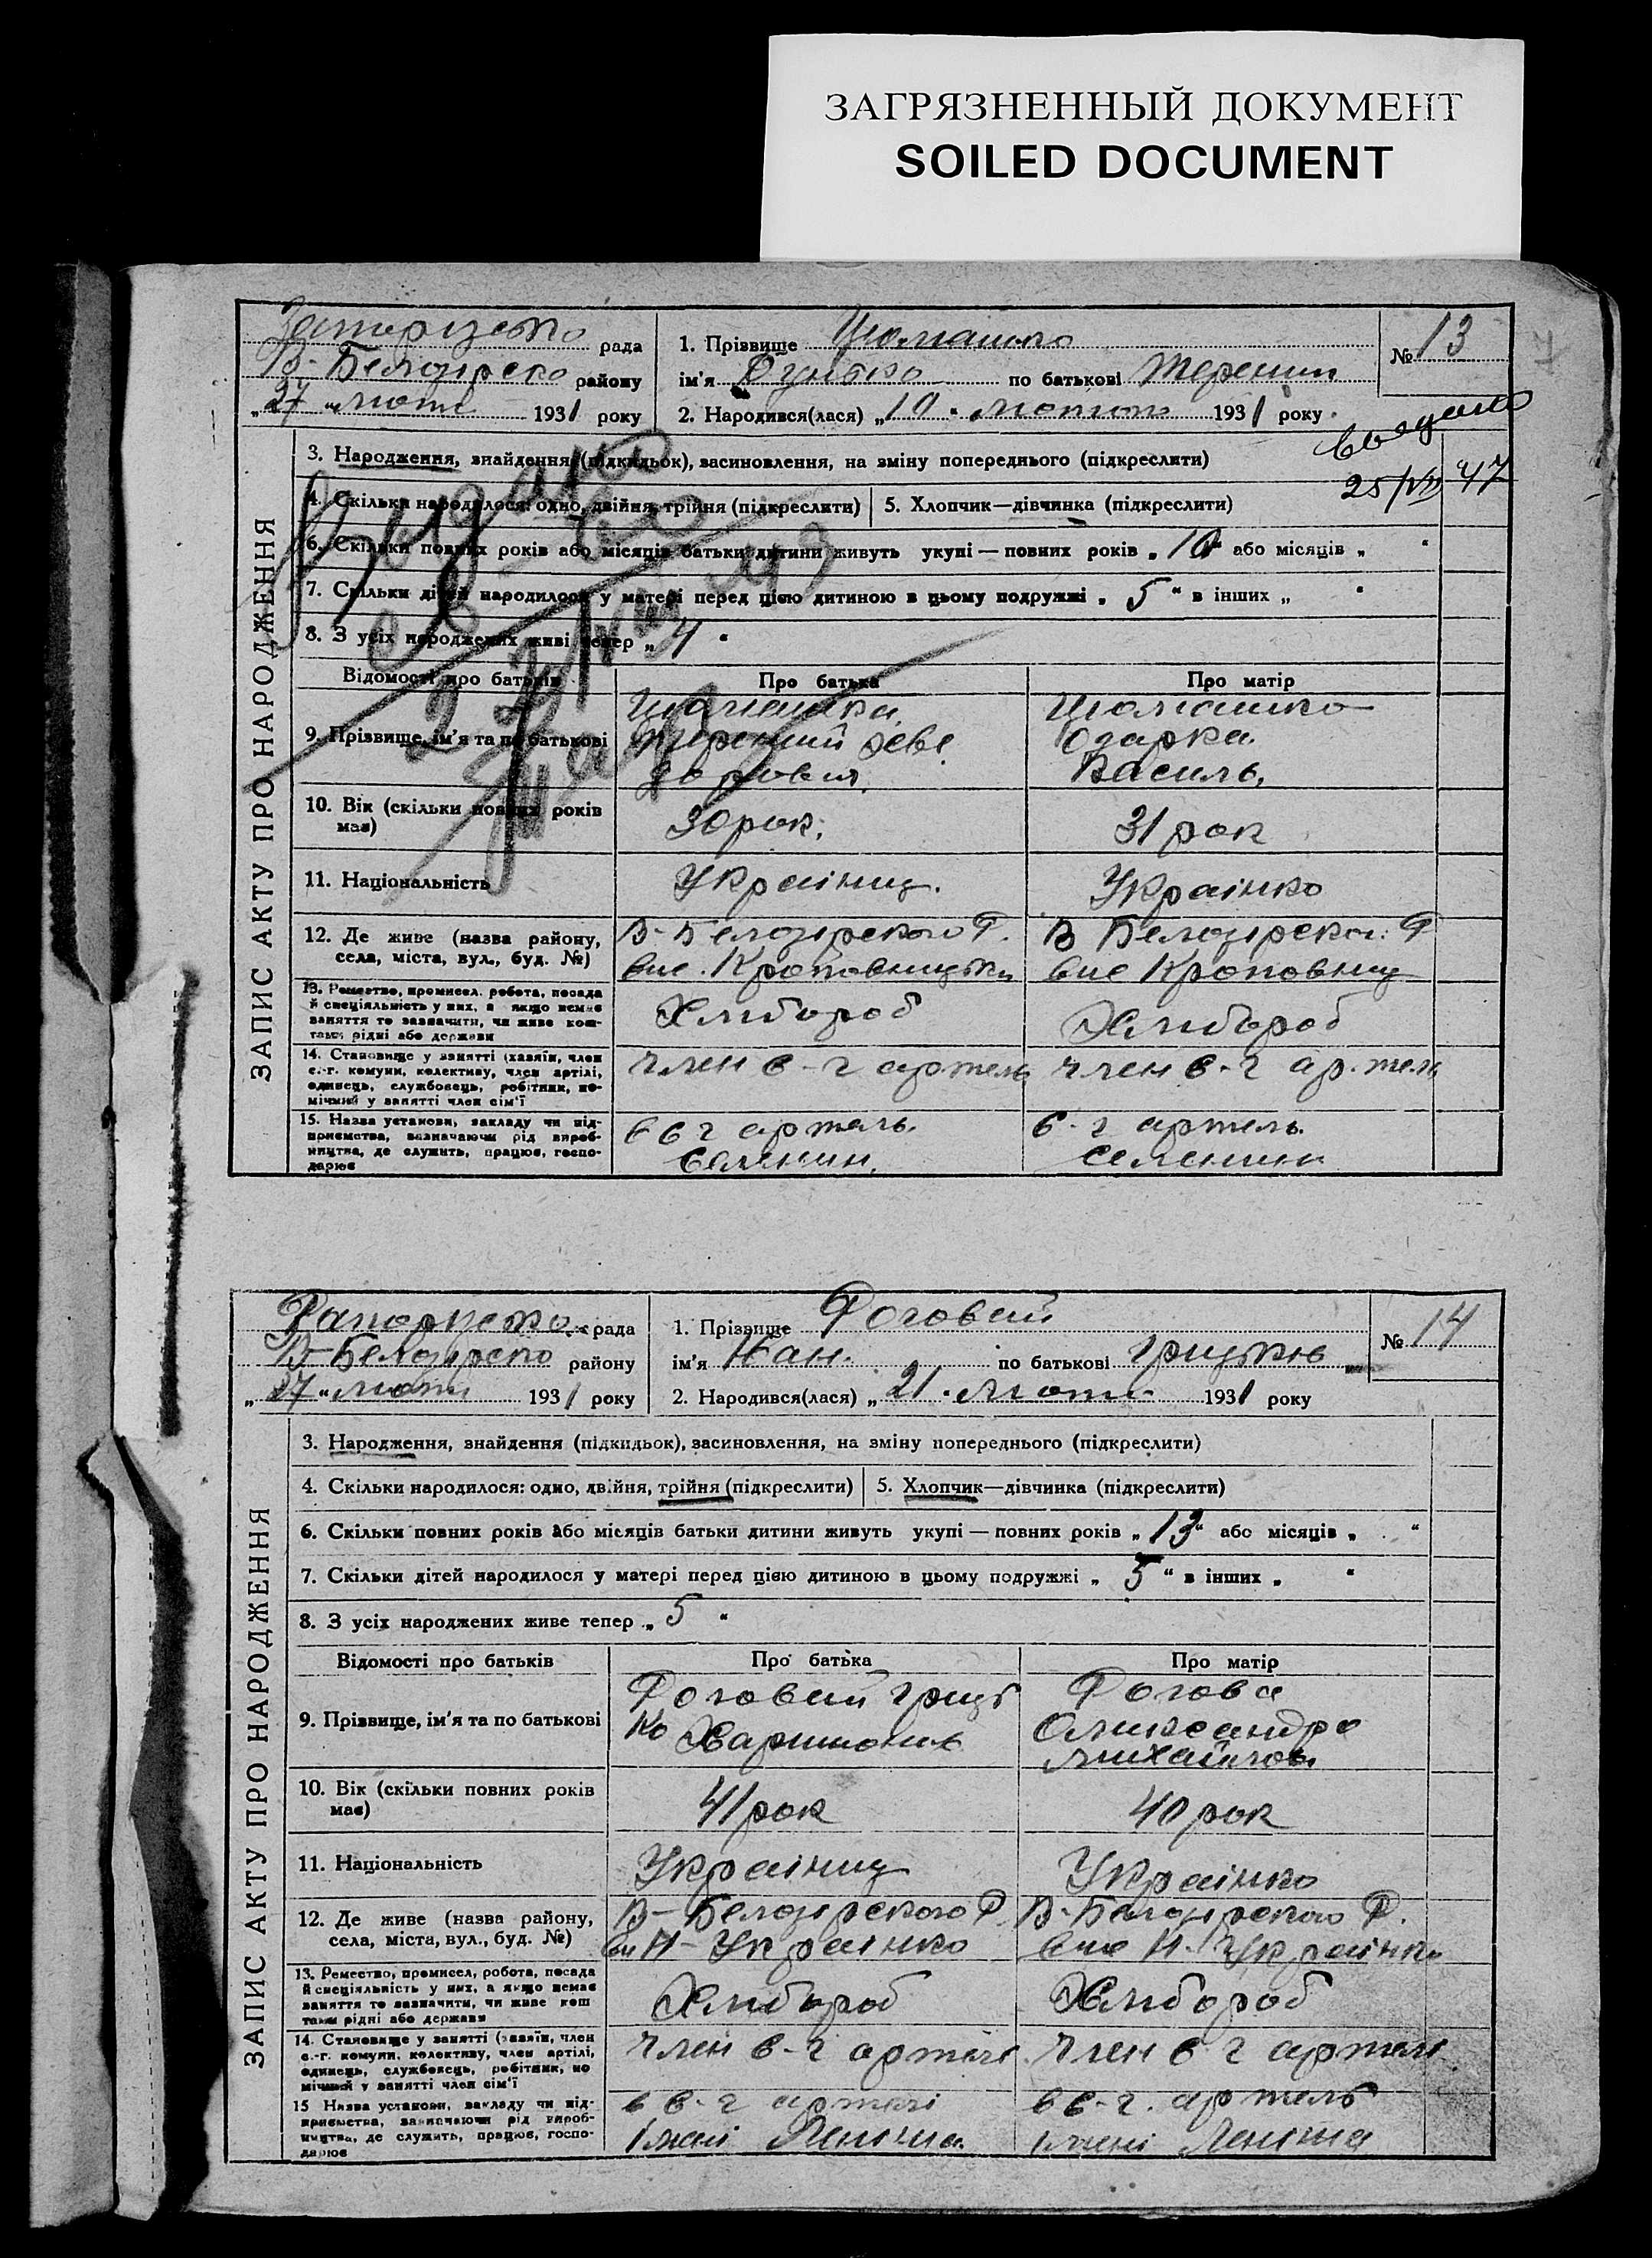 ЗАГРЯЗНЕННЫЙ ДОКУМЕНТ
SOILED DOCUMENT
рада
В-Белозірско району
„27 „ люти 1931 року
1. Прізвище
ім'я по батькові
2. Народився(лася) „10 „ 1931 року
№ 13
ЗАПИС АКТУ ПРО НАРОДЖЕННЯ
3. Народження, знайдення (підкидьок), засиновлення, на зміну попереднього (підкреслити)
4. Скільки народилося: одно, двійня, трійня (підкреслити)
5. Хлопчик—дівчинка (підкреслити)
25/VII 47
6. Скільки повних років або місяців батьки дитини живуть укупі — повних років „ 10 “ або місяців „ “
7. Скільки дітей народилося у матері перед цією дитиною в цьому подружжі „ 5 “ в інших „ “
8. З усіх народжених живі тепер „ 4 “
Відомості про батьків
Про батька
Про матір
9. Прізвище, ім'я та по батькові
Одарка
Василь.
10. Вік (скільки повних років має)
30 рок.
31 рок
11. Національність
Українц.
Українко
12. Де живе (назва району, села, міста, вул., буд. №)
В-Белозірского Р.
вис. Кроповницьки
В Белозірског. Р
вис Кроповниц
13. Ремество, промисел, робота, посада й спеціяльність у них, а якщо немає заняття то зазначити, чи живе коштами рідні або держави
Хлибороб
Хлибороб
14. Становище у занятті (хазяїн, член с.-г. комуни, колективу, член артілі, одинець, службовець, робітник, помічний у занятті член сім'ї
член с-г артель
член с-г ар.тель
15. Назва установи, закладу чи підприємства, зазначаючи рід виробництва, де служить, працює, господарює
в с г артель.
Селянин.
с-г артель
Селянин
рада
В-Белозірско району
„27 „ люти 1931 року
1. Прізвище Роговий
ім'я Іван. по батькові Грицьків
2. Народився(лася) „21 „ люти 1931 року
№ 14
ЗАПИС АКТУ ПРО НАРОДЖЕННЯ
3. Народження, знайдення (підкидьок), засиновлення, на зміну попереднього (підкреслити)
4. Скільки народилося: одно, двійня, трійня (підкреслити)
5. Хлопчик—дівчинка (підкреслити)
6. Скільки повних років або місяців батьки дитини живуть укупі — повних років „ 13 “ або місяців „ “
7. Скільки дітей народилося у матері перед цією дитиною в цьому подружжі „ 5 “ в інших „ “
8. З усіх народжених живе тепер „ 5 “
Відомості про батьків
Про батька
Про матір
9. Прізвище, ім'я та по батькові
Роговий Гриць
ко
Рогова
Олександра
Михайлов
10. Вік (скільки повних років має)
41 рок
40 рок
11. Національність
Українц
Українко
12. Де живе (назва району, села, міста, вул., буд. №)
В-Белозірского Р
вис Н-Українко
В-Белозірского Р.
вис Н. Українко
13. Ремество, промисел, робота, посада й спеціяльність у них, а якщо немає заняття то зазначити, чи живе коштами рідні або держави
Хлибороб
Хлибороб
14. Становище у занятті (хазяїн, член с.-г. комуни, колективу, член артілі, одинець, службовець, робітник, помічний у занятті член сім'ї
член с-г артелі
член с г артелі
15 Назва установи, закладу чи підприємства, зазначаючи рід виробництва, де служить, працює, господарює
в с-г артелі
імені Леніна
в с-г. артель
імені Леніна